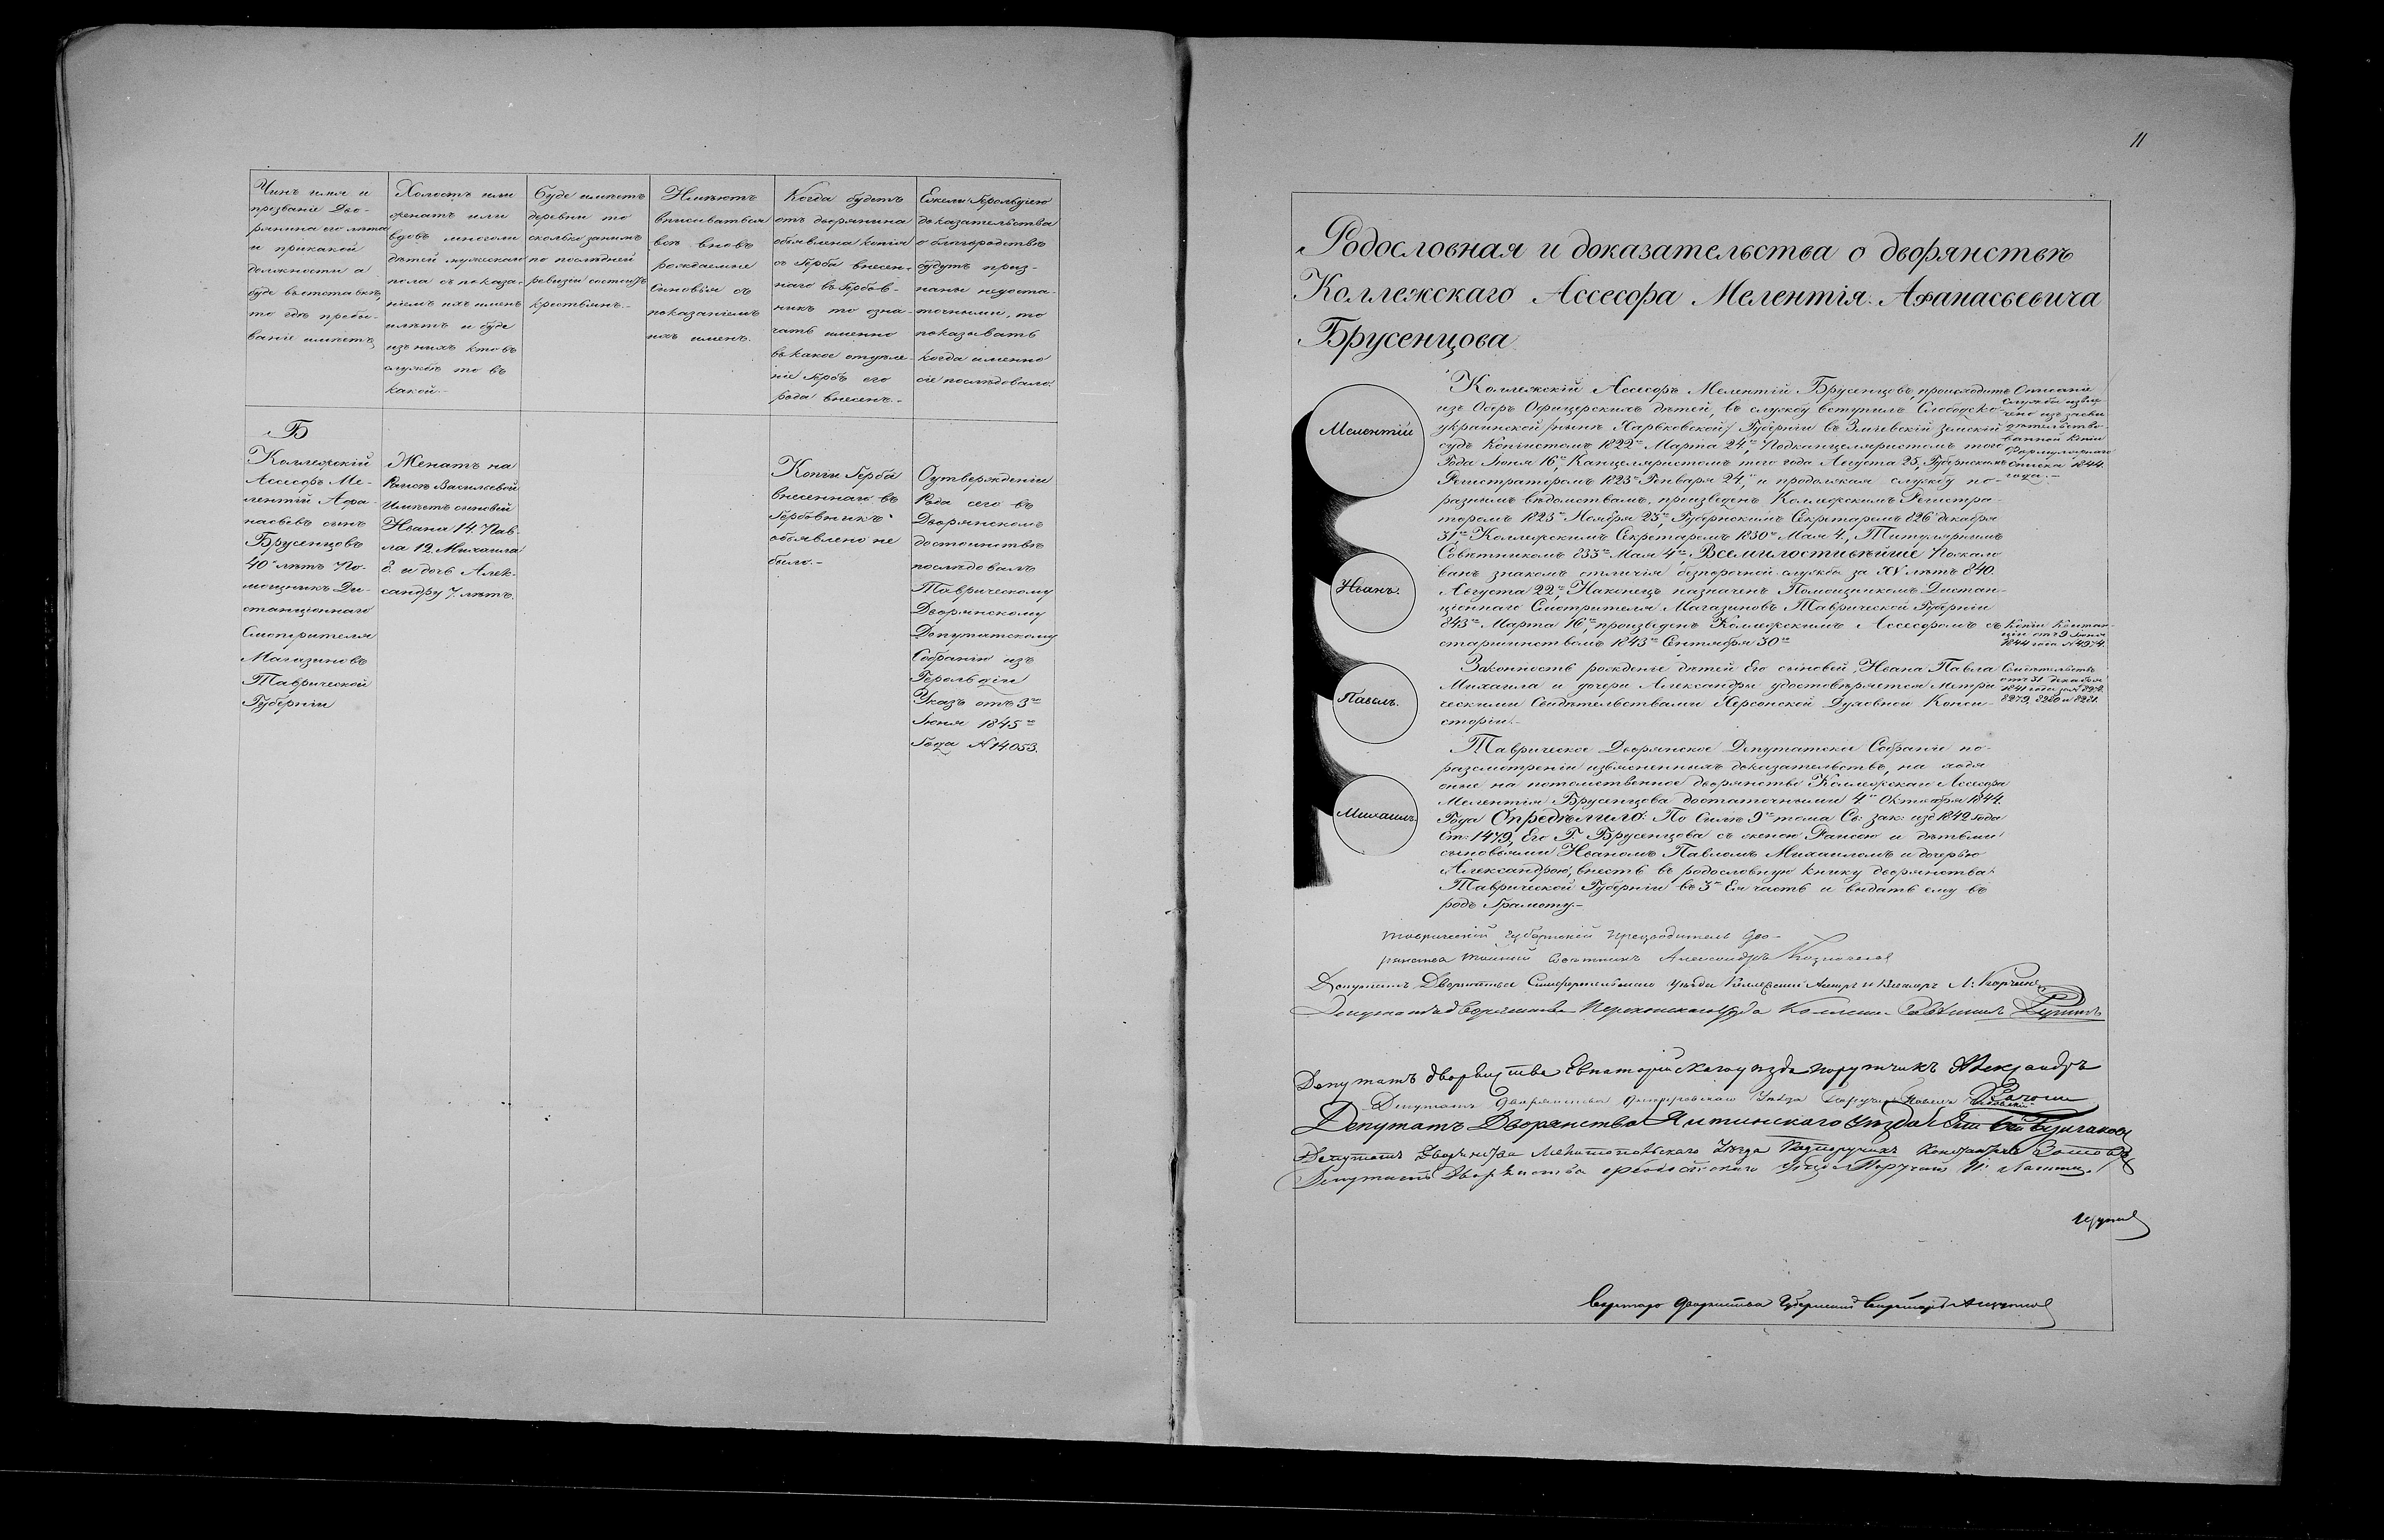 Чинъ имя и
прозваніе Дво-
рянина его лѣта
и прикакой
должности а
буде въ отставкѣ,
то гдѣ пребы-
ваніе имѣетъ,
Холостъ или
женатъ или
вдовъ многоли
дѣтей мужескаго
пола съ показа-
ніемъ ихъ именъ
и лѣтъ и буде
изъ нихъ кто въ
службѣ то въ
какой.-
Буде имѣетъ
деревни то
сколько занимъ
по послѣдней
ревизіи состоитъ
крестьянъ.-
Имѣютъ
вписываться
всѣ вновь
рождаемые
Сыновья съ
показаніемъ
ихъ именъ.
Когда будетъ
отъ дворянина
объявлена копія
съ Герба внесен-
наго въ Гербов-
никъ то озна-
чать именно
въ какое отдѣле-
ніе Гербъ его
рода внесенъ.-
Ежели Герольдіею
доказательства
о благородствѣ
будутъ приз-
наны недоста-
точными, то
показывать
когда именно
сіе послѣдовало.
Б
Коллежскій
Ассесоръ Ме-
лентій Афа-
насьевъ сынъ
Брусенцовъ
40 лѣтъ По-
мощникъ Ди-
станціоннаго
Смотрителя
Магазиновъ
Таврической
Губерніи
Женатъ на
Раисѣ Васильевой
Имѣетъ сыновей
Ивана 14. Пав-
ла 12. Михаила
8. и дочь Алек-
сандру 7. лѣтъ.
Копіи Герба
внесеннаго въ
Гербовникъ
объявлено не
было.-
О утвержденіи
Рода сего въ
Дворянскомъ
достоинствѣ
послѣдовалъ
Таврическому
Дворянскому
Депутатскому
Собранію изъ
Герольдіи
Указъ отъ 3го
Іюня 1845го
Года №14053.
11
Родословная и доказательства о дворянствѣ
Коллежскаго Ассесора Мелентія Афанасьевича
Брусенцова
Мелентій
Иванъ.
Павелъ.
Михаилъ
Коллежскій Ассесоръ Мелентій Брусенцовъ, происходитъ
изъ Оберъ Офицерскихъ дѣтей, въ службу вступилъ Слободско-
украинской /нынѣ Харьковской/ Губерніи въ Зміевскій земскій
судъ Копіистомъ 1822го Марта 24го, Подканцеляристомъ того
Года Іюня 16го, Канцеляристомъ того года Августа 25, Губернскимъ
Регистраторомъ 1823го Генваря 24го, и продолжая службу по-
разнымъ вѣдомствамъ, произведенъ Коллежскимъ Регистра-
торомъ 1823го Ноября 23го, Губернскимъ Секретаремъ 826 декабря
31го, Коллежскимъ Секретаремъ 1830го Мая 4., Титулярнымъ
Совѣтникомъ 833го Мая 4го, Всемилостивѣйше Пожало
ванъ знакомъ отличія безпорочной службы за XV лѣтъ 840.
Августа 22го, Наконецъ назначенъ Помощникомъ Дистан-
ціоннаго Смотрителя Магазиновъ Таврической Губерніи
843го Марта 16го, произведенъ Коллежскимъ Ассесоромъ съ
старшинствомъ 1843го Сентября 30го
Описаніе
службы извле-
чено изъ засви
дѣтельство-
ванной копіи
Формулярнаго
списка 1844.
года.-
Копіи Квитан-
ціи отъ 9 Іюня
1844 года №4974.
Законность рожденіе дѣтей Его сыновей, Ивана Павла
Михаила и дочери Александры удостовѣряется Метри
ческими Свидѣтельствами Херсонской Духовной Конси-
сторіи.-
Свидѣтельствъ
отъ 31 декабря
1841 года за № 8278.
8279, 8280 и 8281.
Таврическое Дворянское Депутатское Собраніе по-
разсмотреніи изъясненныхъ доказательствъ, на ходя
оные на потомственное дворянство Коллежскаго Ассесора
Мелентія Брусенцова достаточными 4го Октября 1844.
Года Опредѣлило: По Силѣ 9го тома Св: зак: изд 1842 года
Ст: 1479, Его Г. Брусенцова съ женою Раисою и дѣтьми
сыновьями Иваномъ Павломъ Михаиломъ и дочерью
Александрою, внесть въ родословную книгу дворянства
Таврической Губерніи въ 3ю Ея часть и выдать ему въ
родъ Грамоту.-
Таврическій Губернскій Предводитель Дво-
рянства Тайный Совѣтникъ Александръ Казначеевъ
Депутатъ Дворянства Симферопольскаго уѣзда Коллежскій
Депутатъ дворянства Перекопскаго уѣзда
Депутатъ дворянства Евпаторійскаго уѣзда поручикъ Александръ
Депутатъ Дворянства Днѣпровскаго Уѣзда Павелъ
Депутатъ Дворянства Ялтинскаго уѣзда
Депутатъ Дворянства Мелитопольскаго Уѣзда Подпоручикъ
Депутатъ Дворянства Феодосійскаго Уѣзда Поручикъ
Секретарь дворянства Губернскій Секретарь